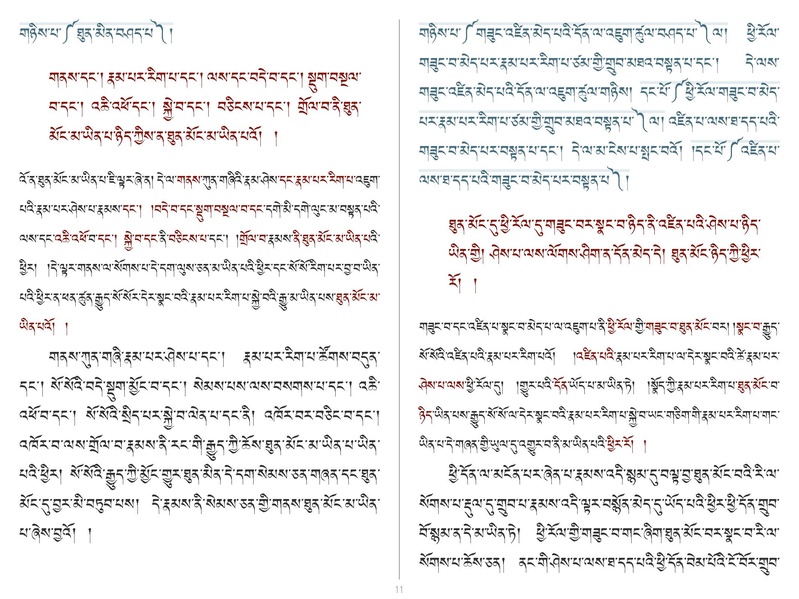 གཉིས་པ་༼ཐུན་མིན་བཤད་པ་༽།
གནས་དང་། རྣམ་པར་རིག་པ་དང་། ལས་དང་བདེ་བ་དང་། སྡུག་བསྔལ་
བ་དང་། འཆི་འཕོ་དང་། སྐྱེ་བ་དང་། བཅིངས་པ་དང་། གྲོལ་བ་ནི་ཐུན་
མོང་མ་ཡིན་པ་ཉིད་ཀྱིས་ན་ཐུན་མོང་མ་ཡིན་པའོ། །
འོ་ན་ཐུན་མོང་མ་ཡིན་པ་ཇི་ལྟར་ཞེ་ན། དེ་ལ་གནས་ཀུན་གཞིའི་རྣམ་ཤེས་དང་རྣམ་པར་རིག་པ་འཇུག་
པའི་རྣམ་པར་ཤེས་པ་རྣམས་དང་། །བདེ་བ་དང་སྡུག་བསྔལ་བ་དང་དགེ་མི་དགེ་ལུང་མ་བསྟན་པའི་
ལས་དང་འཆི་འཕོ་བ་དང་། སྐྱེ་བ་དང་ནི་བཅིངས་པ་དང་། །གྲོལ་བ་རྣམས་ནི་ཐུན་མོང་མ་ཡིན་པའི་
ཕྱིར། །དེ་ལྟར་གནས་ལ་སོགས་པ་དེ་དག་ལུས་ཅན་མ་ཡིན་པའི་ཕྱིར་དང་སོ་སོ་རིག་པར་བྱ་བ་ཡིན་
པའི་ཕྱིར་ན་ཕན་ཚུན་རྒྱུད་སོ་སོར་དེར་སྣང་བའི་རྣམ་པར་རིག་པ་སྐྱེ་བའི་རྒྱུ་མ་ཡིན་པས་ཐུན་མོང་མ་
ཡིན་པའོ། །
གནས་ཀུན་གཞི་རྣམ་པར་ཤེས་པ་དང་། རྣམ་པར་རིག་པ་ཚོགས་བདུན་
དང་། སོ་སོའི་བདེ་སྡུག་མྱོང་བ་དང་། སེམས་པས་ལས་བསགས་པ་དང་། འཆི་
འཕོ་བ་དང་། སོ་སོའི་སྲིད་པར་སྐྱེ་བ་ལེན་པ་དང་ནི། འཁོར་བར་བཅིང་བ་དང་།
འཁོར་བ་ལས་གྲོལ་བ་རྣམས་ནི་རང་གི་རྒྱུད་ཀྱི་ཆོས་ཐུན་མོང་མ་ཡིན་པ་ཡིན་
པའི་ཕྱིར། སོ་སོའི་རྒྱུད་ཀྱི་མྱོང་གྱུར་ཐུན་མིན་དེ་དག་སེམས་ཅན་གཞན་དང་ཐུན་
མོང་དུ་བྱར་མི་བཏུབ་པས། དེ་རྣམས་ནི་སེམས་ཅན་གྱི་གནས་ཐུན་མོང་མ་ཡིན་
པ་ཞེས་བྱའོ། །
གཉིས་པ་༼གཟུང་འཛིན་མེད་པའི་དོན་ལ་འཇུག་ཚུལ་བཤད་པ་༽ལ། ཕྱི་རོལ་
གཟུང་བ་མེད་པར་རྣམ་པར་རིག་པ་ཙམ་གྱི་གྲུབ་མཐའ་བསྟན་པ་དང་། དེ་ལས་
གཟུང་འཛིན་མེད་པའི་དོན་ལ་འཇུག་ཚུལ་གཉིས། དང་པོ་༼ཕྱི་རོལ་གཟུང་བ་མེད་
པར་རྣམ་པར་རིག་པ་ཙམ་གྱི་གྲུབ་མཐའ་བསྟན་པ་༽ལ། འཛིན་པ་ལས་ཐ་དད་པའི་
གཟུང་བ་མེད་པར་བསྟན་པ་དང་། དེ་ལ་མ་ངེས་པ་སྤང་བའོ། །དང་པོ་༼འཛིན་པ་
ལས་ཐ་དད་པའི་གཟུང་བ་མེད་པར་བསྟན་པ་༽།
ཐུན་མོང་དུ་ཕྱི་རོལ་དུ་གཟུང་བར་སྣང་བ་ཉིད་ནི་འཛིན་པའི་ཤེས་པ་ཉིད་
ཡིན་གྱི། ཤེས་པ་ལས་ལོགས་ཤིག་ན་དོན་མེད་དེ། ཐུན་མོང་ཉིད་ཀྱི་ཕྱིར་
རོ། །
གཟུང་བ་དང་འཛིན་པ་སྣང་བ་མེད་པ་ལ་འཇུག་པ་ནི་ཕྱི་རོལ་གྱི་གཟུང་བ་ཐུན་མོང་བར། །སྣང་བ་རྒྱུད་
སོ་སོའི་འཛིན་པའི་རྣམ་པར་རིག་པའོ། །འཛིན་པའི་རྣམ་པར་རིག་པ་ལ་དེར་སྣང་བའི་ཚེ་རྣམ་པར་
ཤེས་པ་ལས་ཕྱི་རོལ་དུ། །གྱུར་པའི་དོན་ཡོད་པ་མ་ཡིན་ཏེ། །སྣོད་ཀྱི་རྣམ་པར་རིག་པ་ཐུན་མོང་བ་
ཉིད་ཡིན་པས་རྒྱུད་སོ་སོ་ལ་དེར་སྣང་བའི་རྣམ་པར་རིག་པ་སྐྱེ་བ་ཡང་གཅིག་གི་རྣམ་པར་རིག་པ་གང་
ཡིན་པ་དེ་གཞན་གྱི་ཡུལ་དུ་འགྱུར་བ་ནི་མ་ཡིན་པའི་ཕྱིར་རོ། །
ཕྱི་དོན་ལ་མངོན་པར་ཞེན་པ་རྣམས་འདི་སྙམ་དུ་བལྟ་བྱ་ཐུན་མོང་བའི་རི་ལ་
སོགས་པ་རྡུལ་དུ་གྲུབ་པ་རྣམས་འདི་ལྟར་བསྙོན་མེད་དུ་ཡོད་པའི་ཕྱིར་ཕྱི་དོན་གྲུབ་
བོ་སྙམ་ན་དེ་མ་ཡིན་ཏེ། ཕྱི་རོལ་གྱི་གཟུང་བ་གང་ཞིག་ཐུན་མོང་བར་སྣང་བ་རི་ལ་
སོགས་པ་ཆོས་ཅན། ནང་གི་ཤེས་པ་ལས་ཐ་དད་པའི་ཕྱི་དོན་བེམ་པོའི་ངོ་བོར་གྲུབ་
11